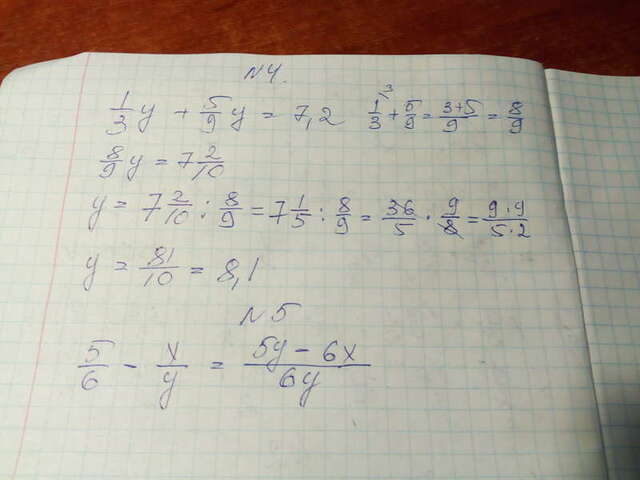 N4.
1/3 y + 5/9 y = 7,2   1/3 ³ + 5/9 = 3+5/9 = 8/9
8/9 y = 7 2/10
y = 7 2/10 : 8/9 = 7 1/5 : 8/9 = 36/5 · 9/8 = 9·9/5·2
y = 81/10 = 8,1
N5
5/6 - x/y = 5y - 6x/6y